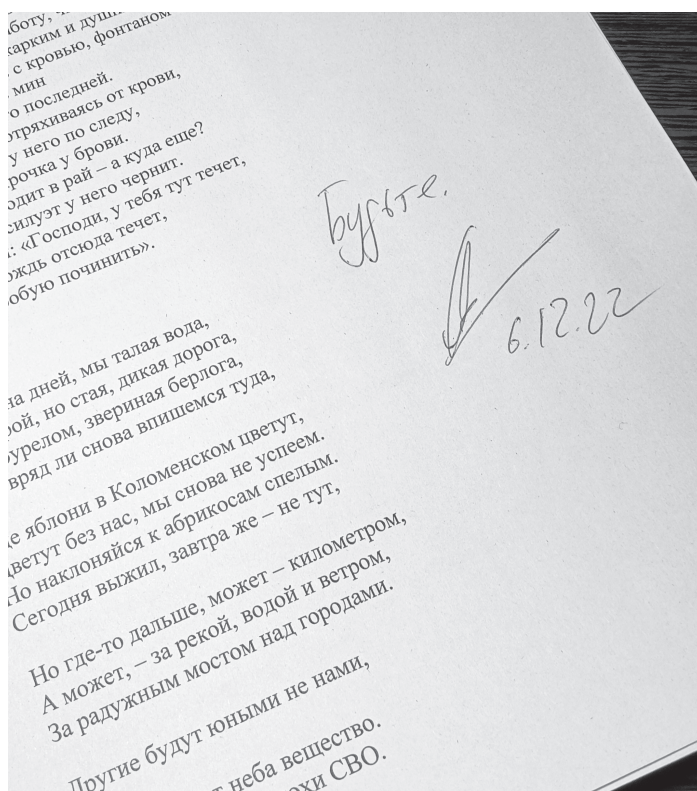 боту,
жарким и
с кровью, фонтаном
мин
о последней.
отряхиваясь от крови,
у него по следу,
рочка у брови.
одит в рай – а куда еще?
силуэт у него чернит.
: «Господи, у тебя тут течет,
ождь отсюда течет,
обую починить».
Будьте.
6.12.22
на дней, мы талая вода,
рой, но стая, дикая дорога,
урелом, звериная берлога,
вряд ли снова впишемся туда,
е яблони в Коломенском цветут,
цветут без нас, мы снова не успеем.
Но наклоняйся к абрикосам спелым.
Сегодня выжил, завтра же – не тут,
Но где-то дальше, может – километром,
А может, – за рекой, водой и ветром,
За радужным мостом над городами.
Другие будут юными не нами,
т неба вещество.
охи СВО.